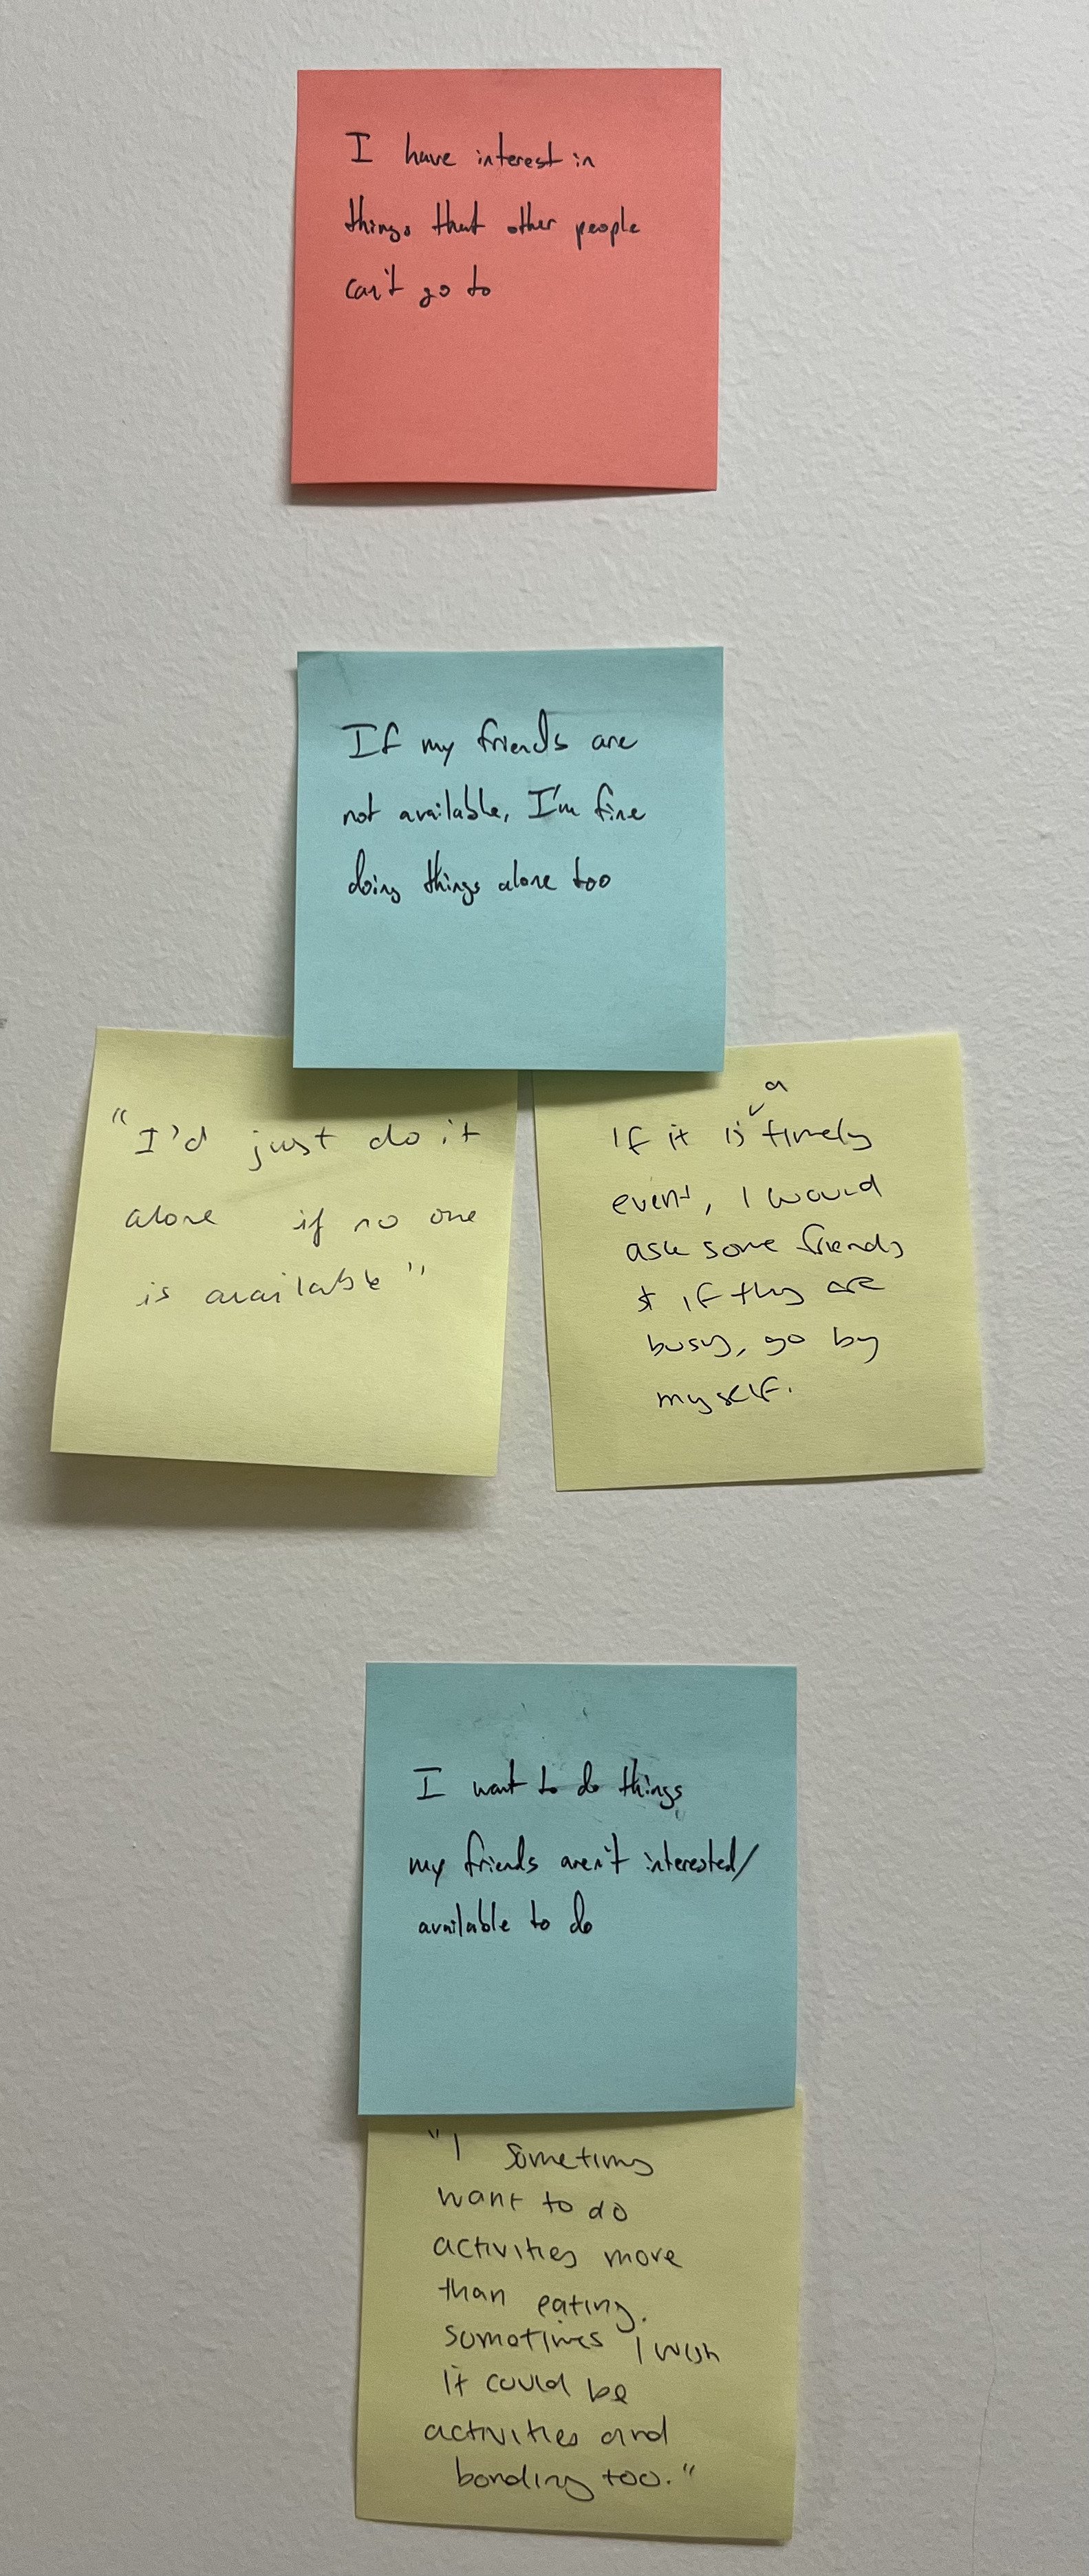 I have interest in
things that other people
can't go to
If my friends are
not available, I'm fine
doing things alone too
"I'd just do it
alone if no one
is available"
If it is a timely
event, I would
ask some friends
& if they are
busy, go by
myself.
I want to do things
my friends aren't interested/
available to do
"I sometimes
want to do
activities more
than eating.
sometimes I wish
it could be
activities and
bonding too."